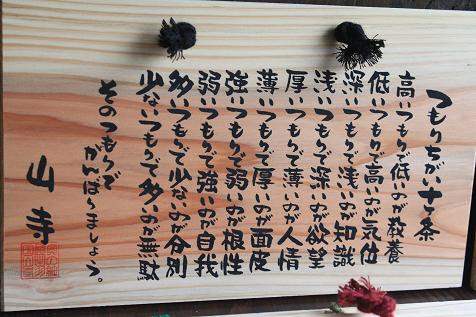 つもりちがい十ヶ条
高いつもりで低いのが教養
低いつもりで高いのが気位
深いつもりで浅いのが知識
浅いつもりで深いのが欲望
厚いつもりで薄いのが人情
薄いつもりで厚いのが面皮
強いつもりで弱いのが根性
弱いつもりで強いのが自我
多いつもりで少ないのが分別
少ないつもりで多いのが無駄
そのつもりで
がんばりましょう。
山寺